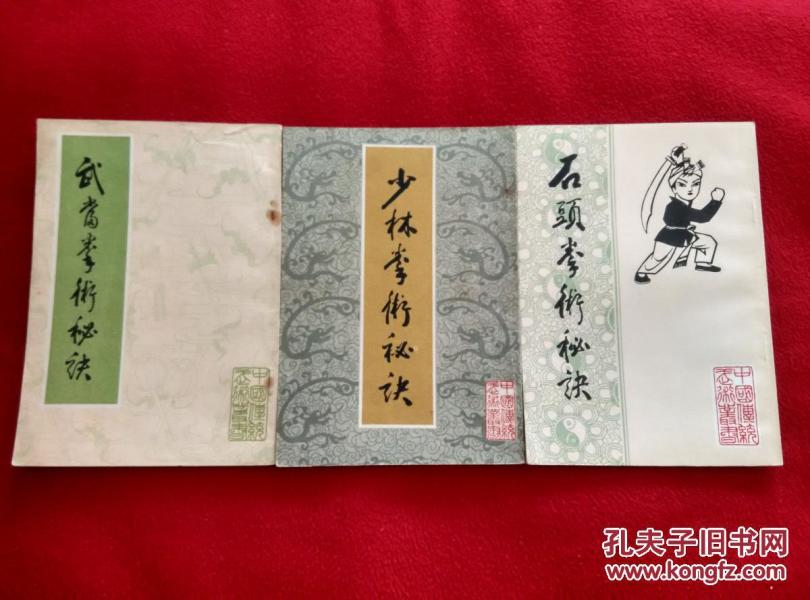 武當拳術秘诀
中國傳統
武術叢書
少林拳術秘诀
中國傳統
武術叢書
石頭拳術秘訣
中國傳統
武術叢書
孔夫子旧书网
www.kongfz.com